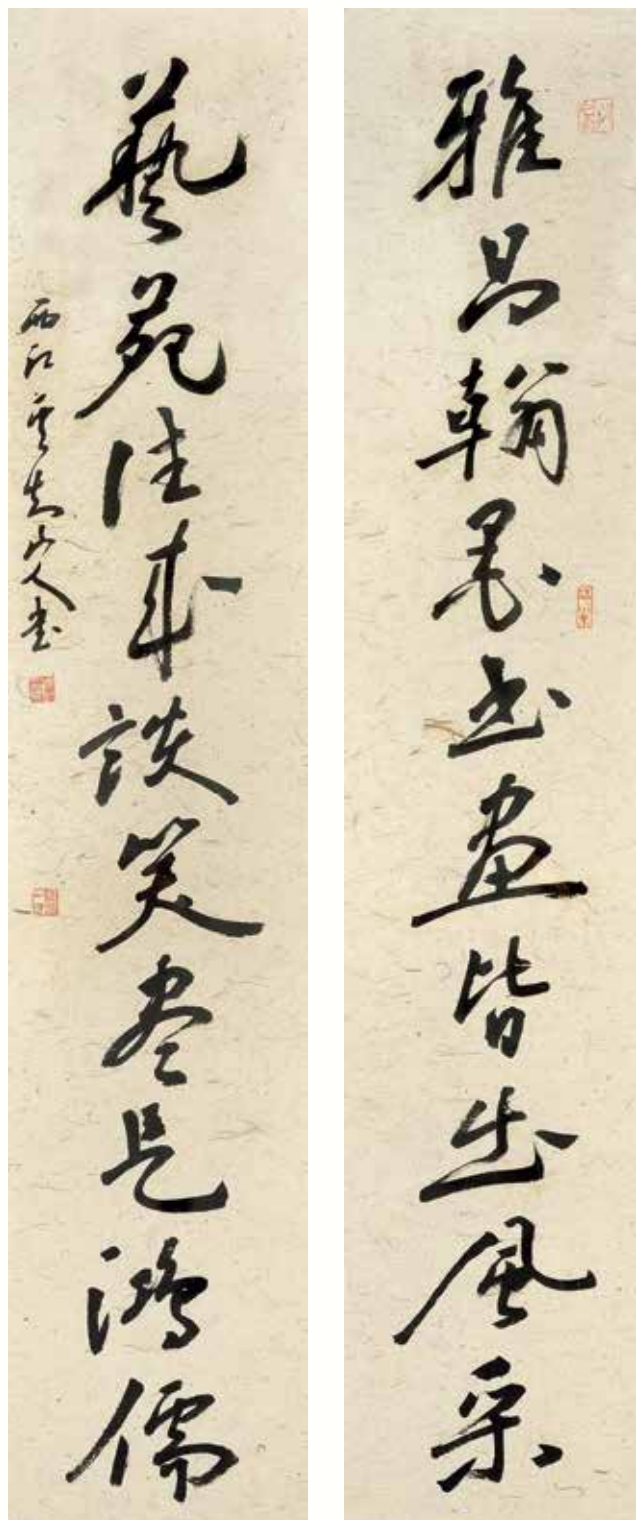 雅昌翰墨書畫皆出風采
藝苑往來談笑盡是鴻儒
西江雲山人書